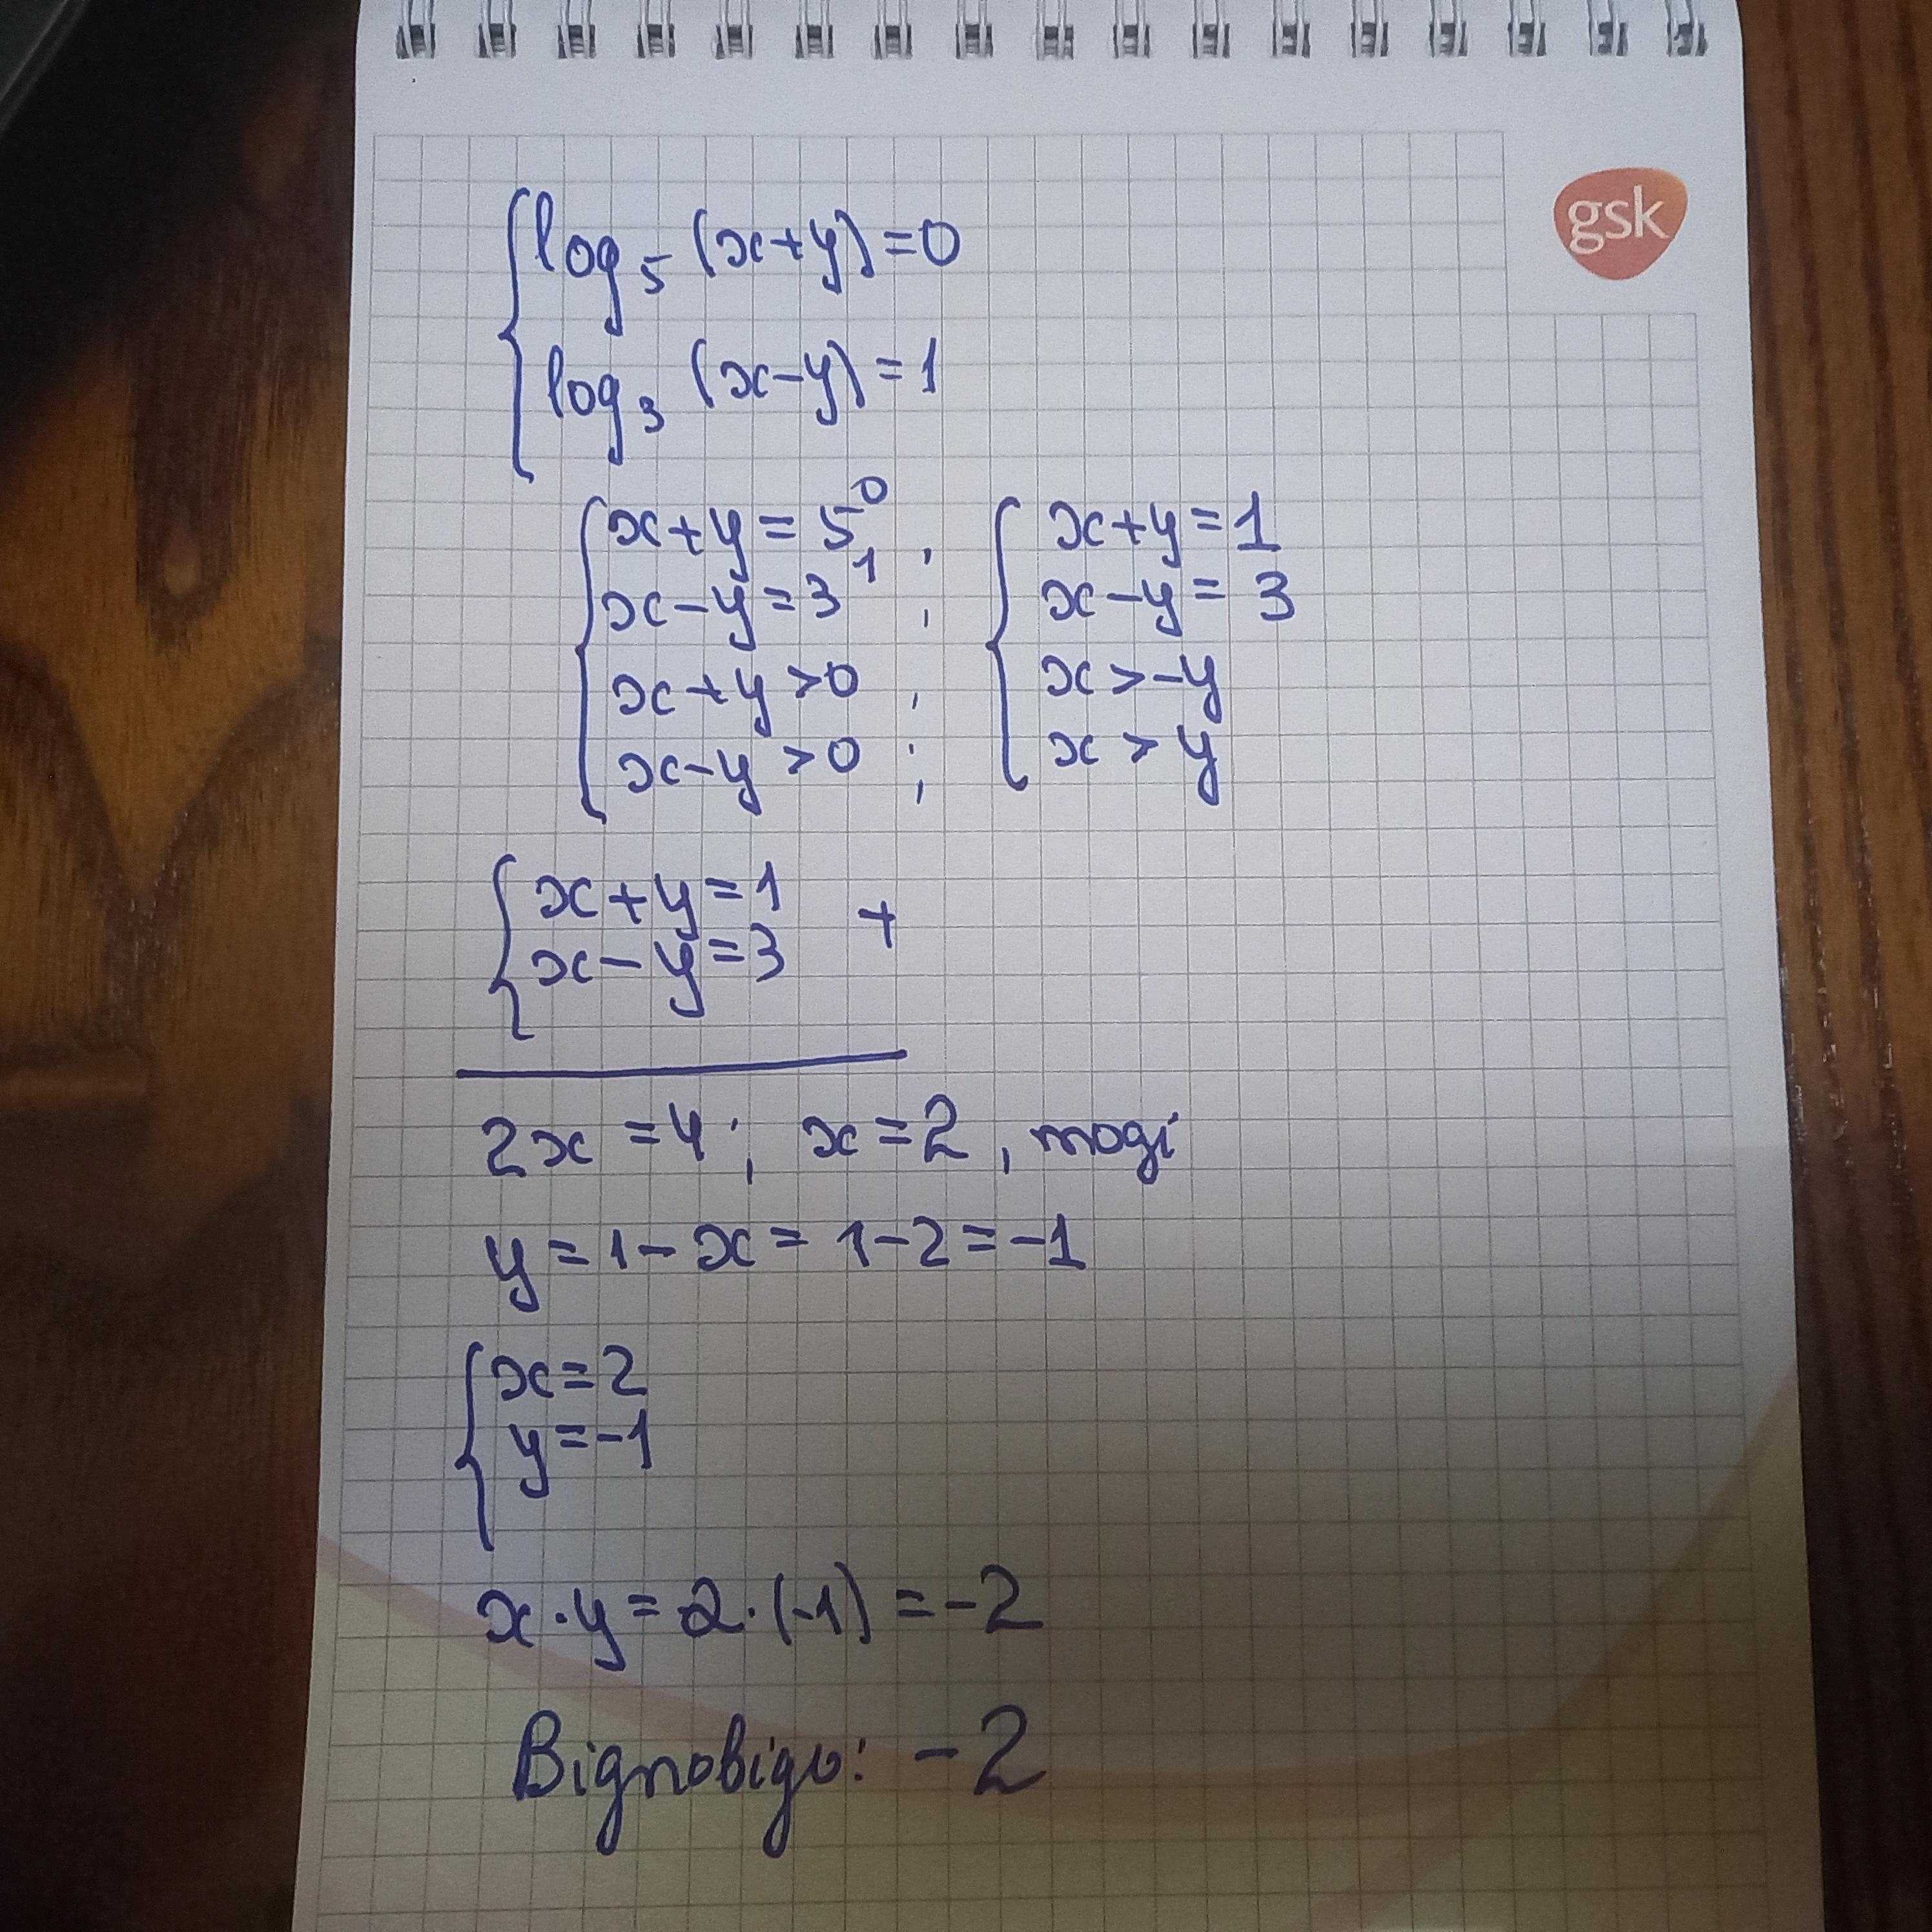 gsk
log₅ (x+y)=0
log₃ (x-y)=1
x+y=5⁰ ; x+y=1
x-y=3¹ ; x-y=3
x+y>0 ; x>-y
x-y>0 ; x>y
x+y=1 +
x-y=3
2x=4; x=2, тоді
y=1-x=1-2=-1
x=2
y=-1
x·y=2·(-1)=-2
Відповідь: -2